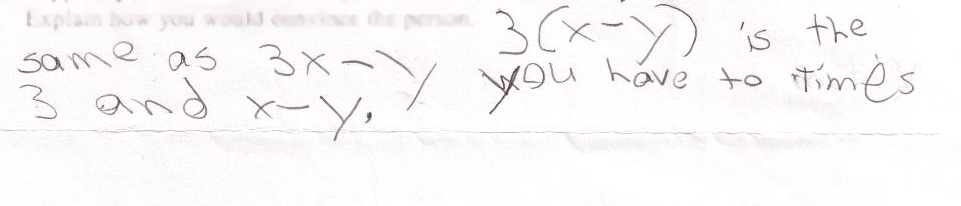 Explain how you would convince the person.
3(x-y) is the
same as 3x-y you have to times
3 and x-y.